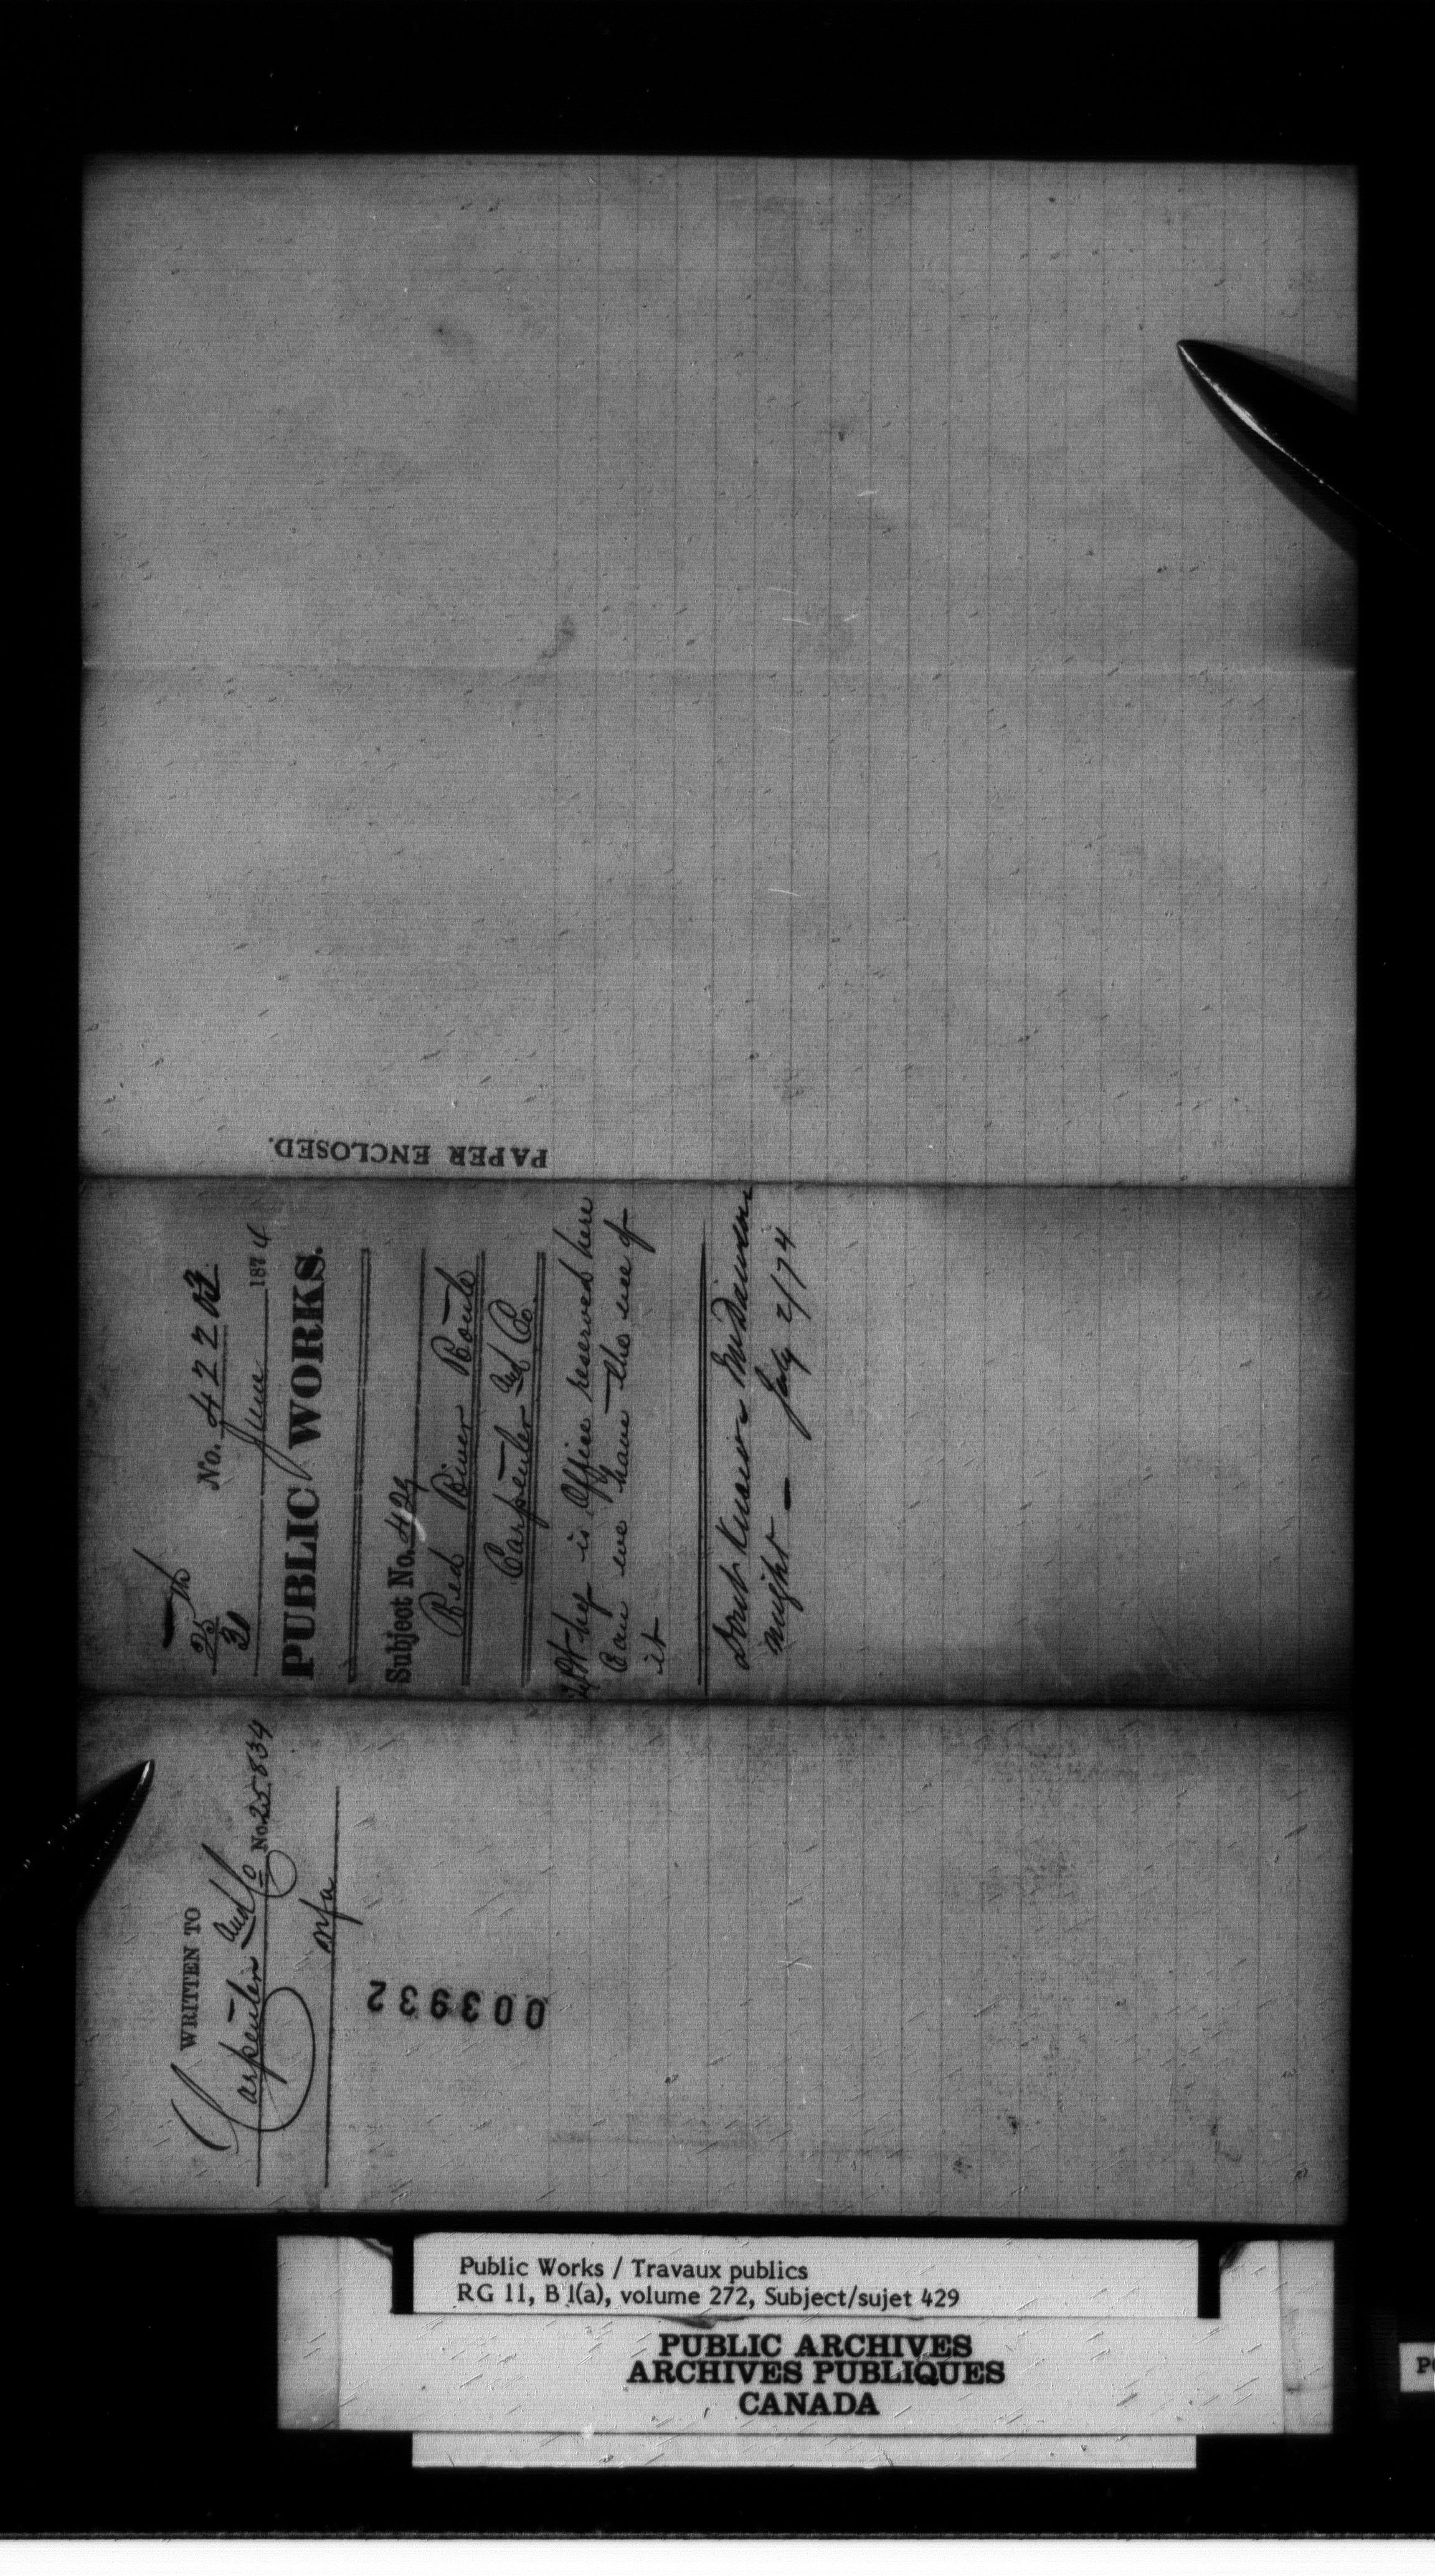 PAPER ENCLOSED.
25
30
No. 42203
June 1874
PUBLIC WORKS.
Subject No. 429
Red River Route
Carpenter and Co.
Why is Office reserved here
Can we have the use of
it
Dont know
might — July 2/74
WRITTEN TO
Carpenter and Co No. 25834
003932
Public Works / Travaux publics
RG 11, B 1(a), volume 272, Subject/sujet 429
PUBLIC ARCHIVES
ARCHIVES PUBLIQUES
CANADA